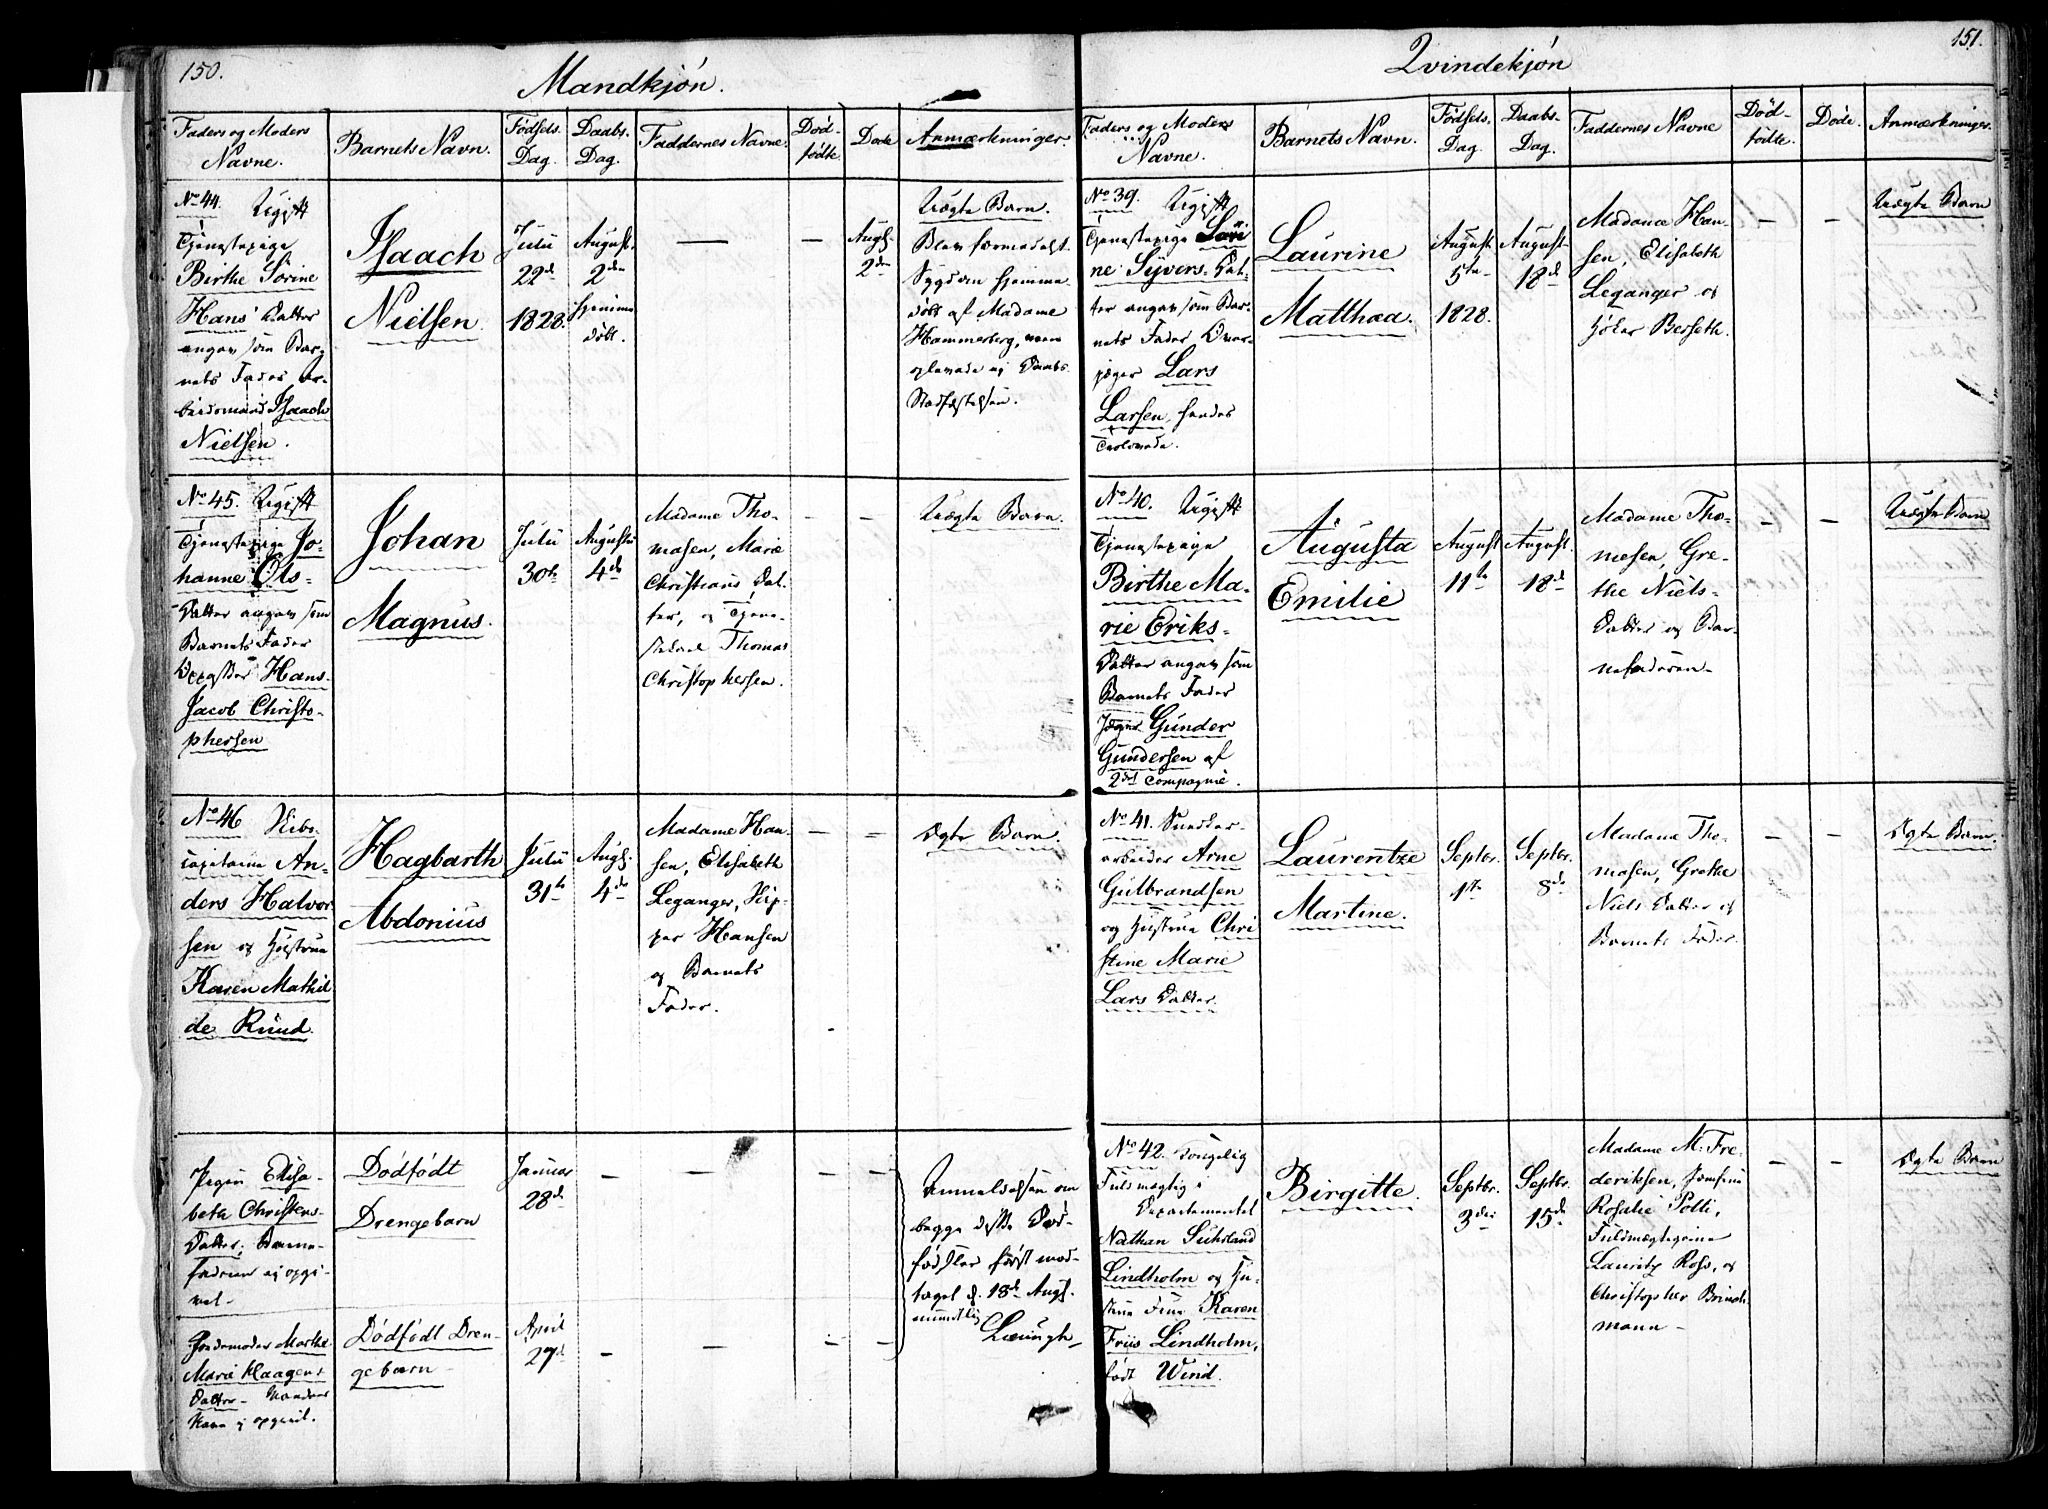 150.
Mandkjón.
Faders og Moders
Navne.
Barnets Navn.
Fødsels.
Dag.
Daabs.
Dag.
Faddernes Navne.
Død-
fødte
Døde
Anmærkninger.
No 44. Ugift
Tjenestepige
Birthe Sørine
Hans' Datter
angav som Bar-
nets Fader Ar-
beidsmand Isaach
Nielsen.
Isaach
Nielsen.
Julii
22de
1828.
August.
2den
hjemme
døbt.
—
—
Augst.
2den
Uægte Barn.
Blev formedelst
Sygdom hjemme
døbt af Madame
Hammerberg, men
oplevede ej Daabs
Stadfæstelsen.
No 45. Ugift
Tjenestepige Jo-
hanne Ols-
Datter angav som
Barnets Fader
Opasser Hans
Jacob Christo-
phersen
Johan
Magnus.
Julii
30te
Augustii
4de
Madame Tho-
masen, Marie
Christians Dat-
ter, og Tjene-
stekarl Thomas
Christophersen.
—
—
Uægte Barn.
No 46 Skibs-
capitaine An-
ders Halvor
sen og Hustrue
Karen Mathil
de Ruud.
Hagbarth
Abdonius
Julii
31te
Augst.
4de
Madame Han-
sen, Elisabeth
Leganger, Skip-
per Hansen
og Barnets
Fader.
—
—
Ægte Barn.
Pigen Elisa-
beth Christens-
Datter; Barne-
faderen ej opgi-
vet.
Dódfódt
Drengebarn
Januar
28de
—
—
—
—
Anmeldelsen om
begge disse Død-
fødsler først mod-
taget d. 18de Augst.
mundtlig
Jordemoder Marthe
Marie Haagens
Datter
Navn ej opgivet.
Dódfódt Dren-
gebarn
April
27de
—
—
—
—
151.
Qvindekjón
Faders og Moders
Navne.
Barnets Navn.
Fødsels.
Dag.
Daabs-
Dag.
Faddernes Navne
Død-
fødte.
Døde.
Anmærkninger.
No 39. Ugift
Tjenestepige Lovi
ne Syvers- Dat-
ter angav som Bar-
nets Fader
jæger Lars
Larsen,
Laurine
Matthea.
August
5te
1828.
August
18de
Madame Han-
sen, Elisabeth
Leganger og
Berseth.
—
—
Uægte Barn
No 40. Ugift
Tjenestepige
Birthe Ma-
rie Eriks-
Datter angav som
Barnets Fader
Jæger Gunder
Gundersen af
2det Compagnie.
Augusta
Emilie
August
11te
August.
18de
Madame Tho-
mesen, Gre-
the Niels-
Datter og Bar-
nefaderen
—
—
Uægte Barn
No 41.
arbeider Arne
Gulbrandsen
og Hustrue Chri
stine Marie
Lars Datter.
Laurentze
Martine.
Septbr.
1ste
Septbr.
8de
Madame Tho-
masen, Grethe
Niels Datter og
Barnets Fader.
—
—
Ægte Barn.
No 42. Kongelig
Fuldmægtig i
Departementet
Nathan Suhrland
Lindholm og Hu-
strue Frue Karen
Friis Lindholm,
født Wind.
Birgitte.
Septbr.
3die
Septbr.
15de
Madame M. Fre-
deriksen, Jomfrue
Rosalie Potti,
Fuldmægtigerne
Lauritz Ross, og
Christopher Brinch
mann
—
—
Ægte Barn